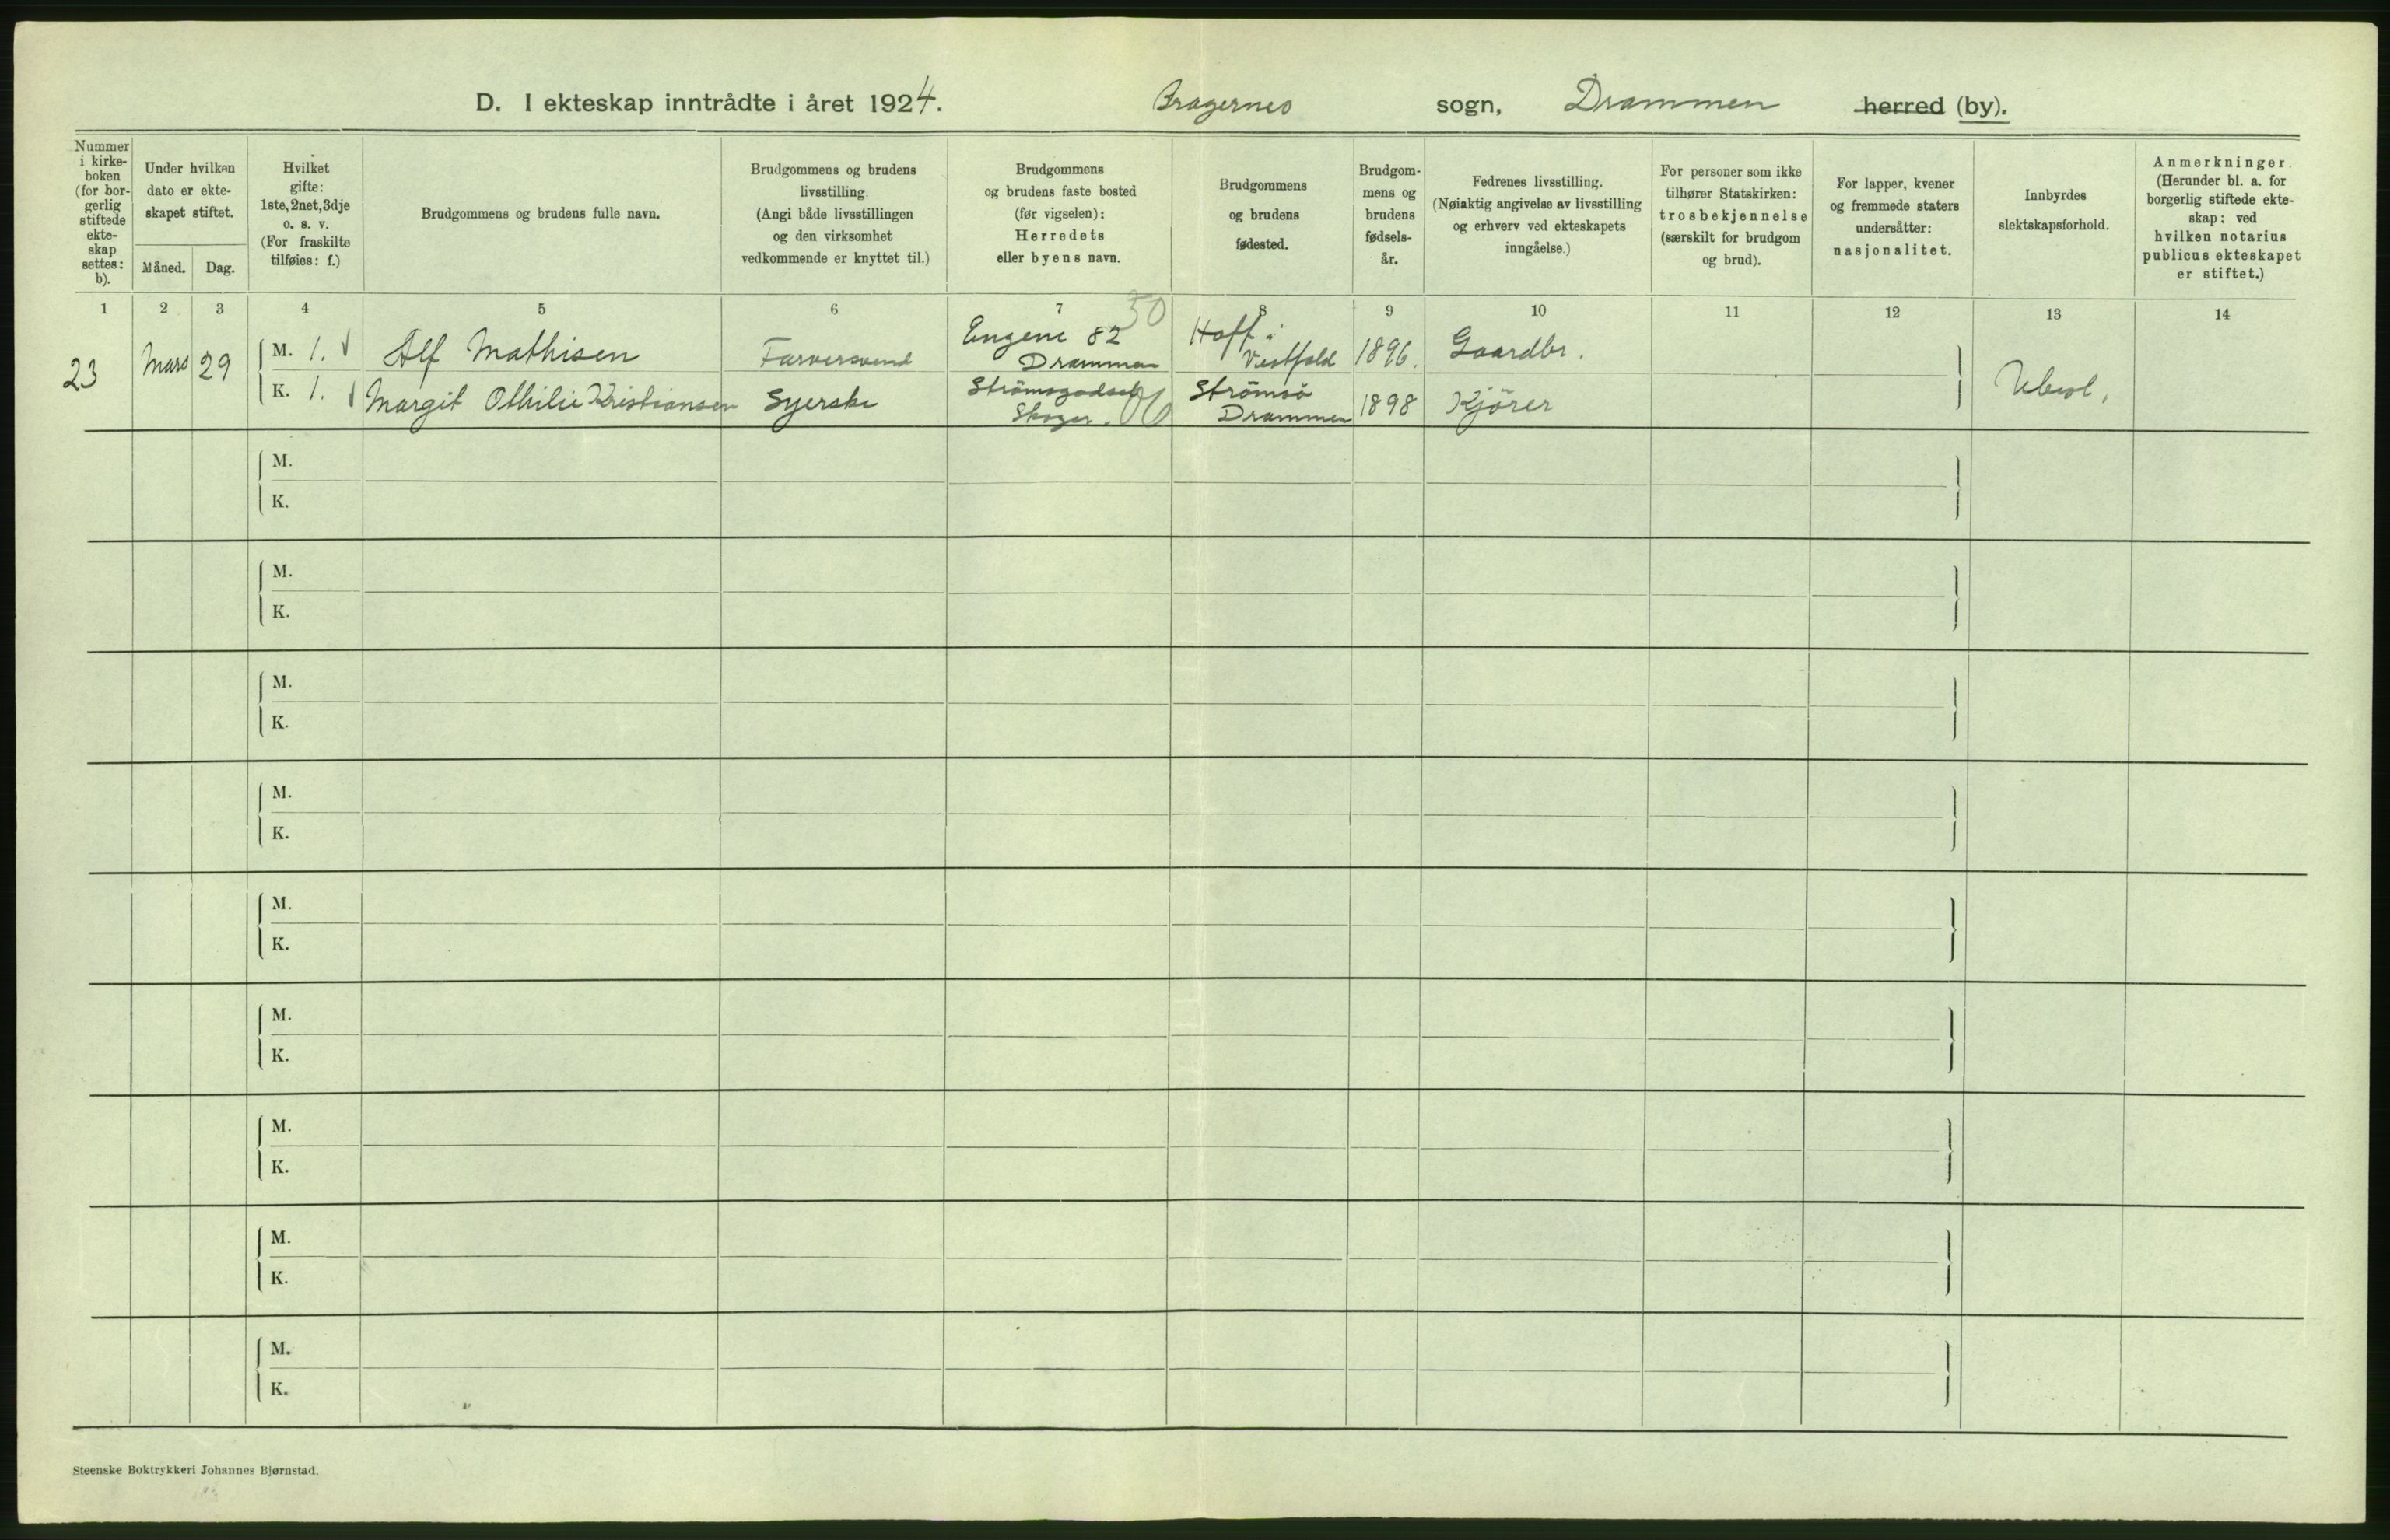 D. I ekteskap inntrådte i året 1924. Bragernes sogn, Drammen herred (by).
Nummer
i kirke-
boken
(for bor-
gerlig
stiftede
ekte-
skap
settes:
b).
Under hvilken
dato er ekte-
skapet stiftet.
Måned. Dag.
Hvilket
gifte:
1ste, 2net, 3dje
o. s. v.
(For fraskilte
tilføies: f.)
Brudgommens og brudens fulle navn.
Brudgommens og brudens
livsstilling.
(Angi både livsstillingen
og den virksomhet
vedkommende er knyttet til.)
Brudgommens
og brudens faste bosted
(før vigselen):
Herredets
eller byens navn.
Brudgommens
og brudens
fødested.
Brudgom-
mens og
brudens
fødsels-
år.
Fedrenes livsstilling.
(Nøiaktig angivelse av livsstilling
og erhverv ved ekteskapets
inngåelse.)
For personer som ikke
tilhører Statskirken:
trosbekjennelse
(særskilt for brudgom
og brud).
For lapper, kvener
og fremmede staters
undersåtter:
nasjonalitet.
Innbyrdes
slektskapsforhold.
Anmerkninger.
(Herunder bl. a. for
borgerlig stiftede ekte-
skap: ved
hvilken notarius
publicus ekteskapet
er stiftet.)
1 2 3 4 5 6 7 8 9 10 11 12 13 14
50
23 Mars 29
M. 1. Alf Mathisen Farversvend Engene 82 Drammen Hoff i Vestfold 1896. Gaardbr.
K. 1. Margit Othilie Kristiansen Syerske Strömsgodset Skoger. Strömsö Drammen 1898 Kjörer
Ubesl.
M.
K.
M.
K.
M.
K.
M.
K.
M.
K.
M.
K.
M.
K.
M.
K.
M.
K.
Steenske Boktrykkeri Johannes Bjørnstad.